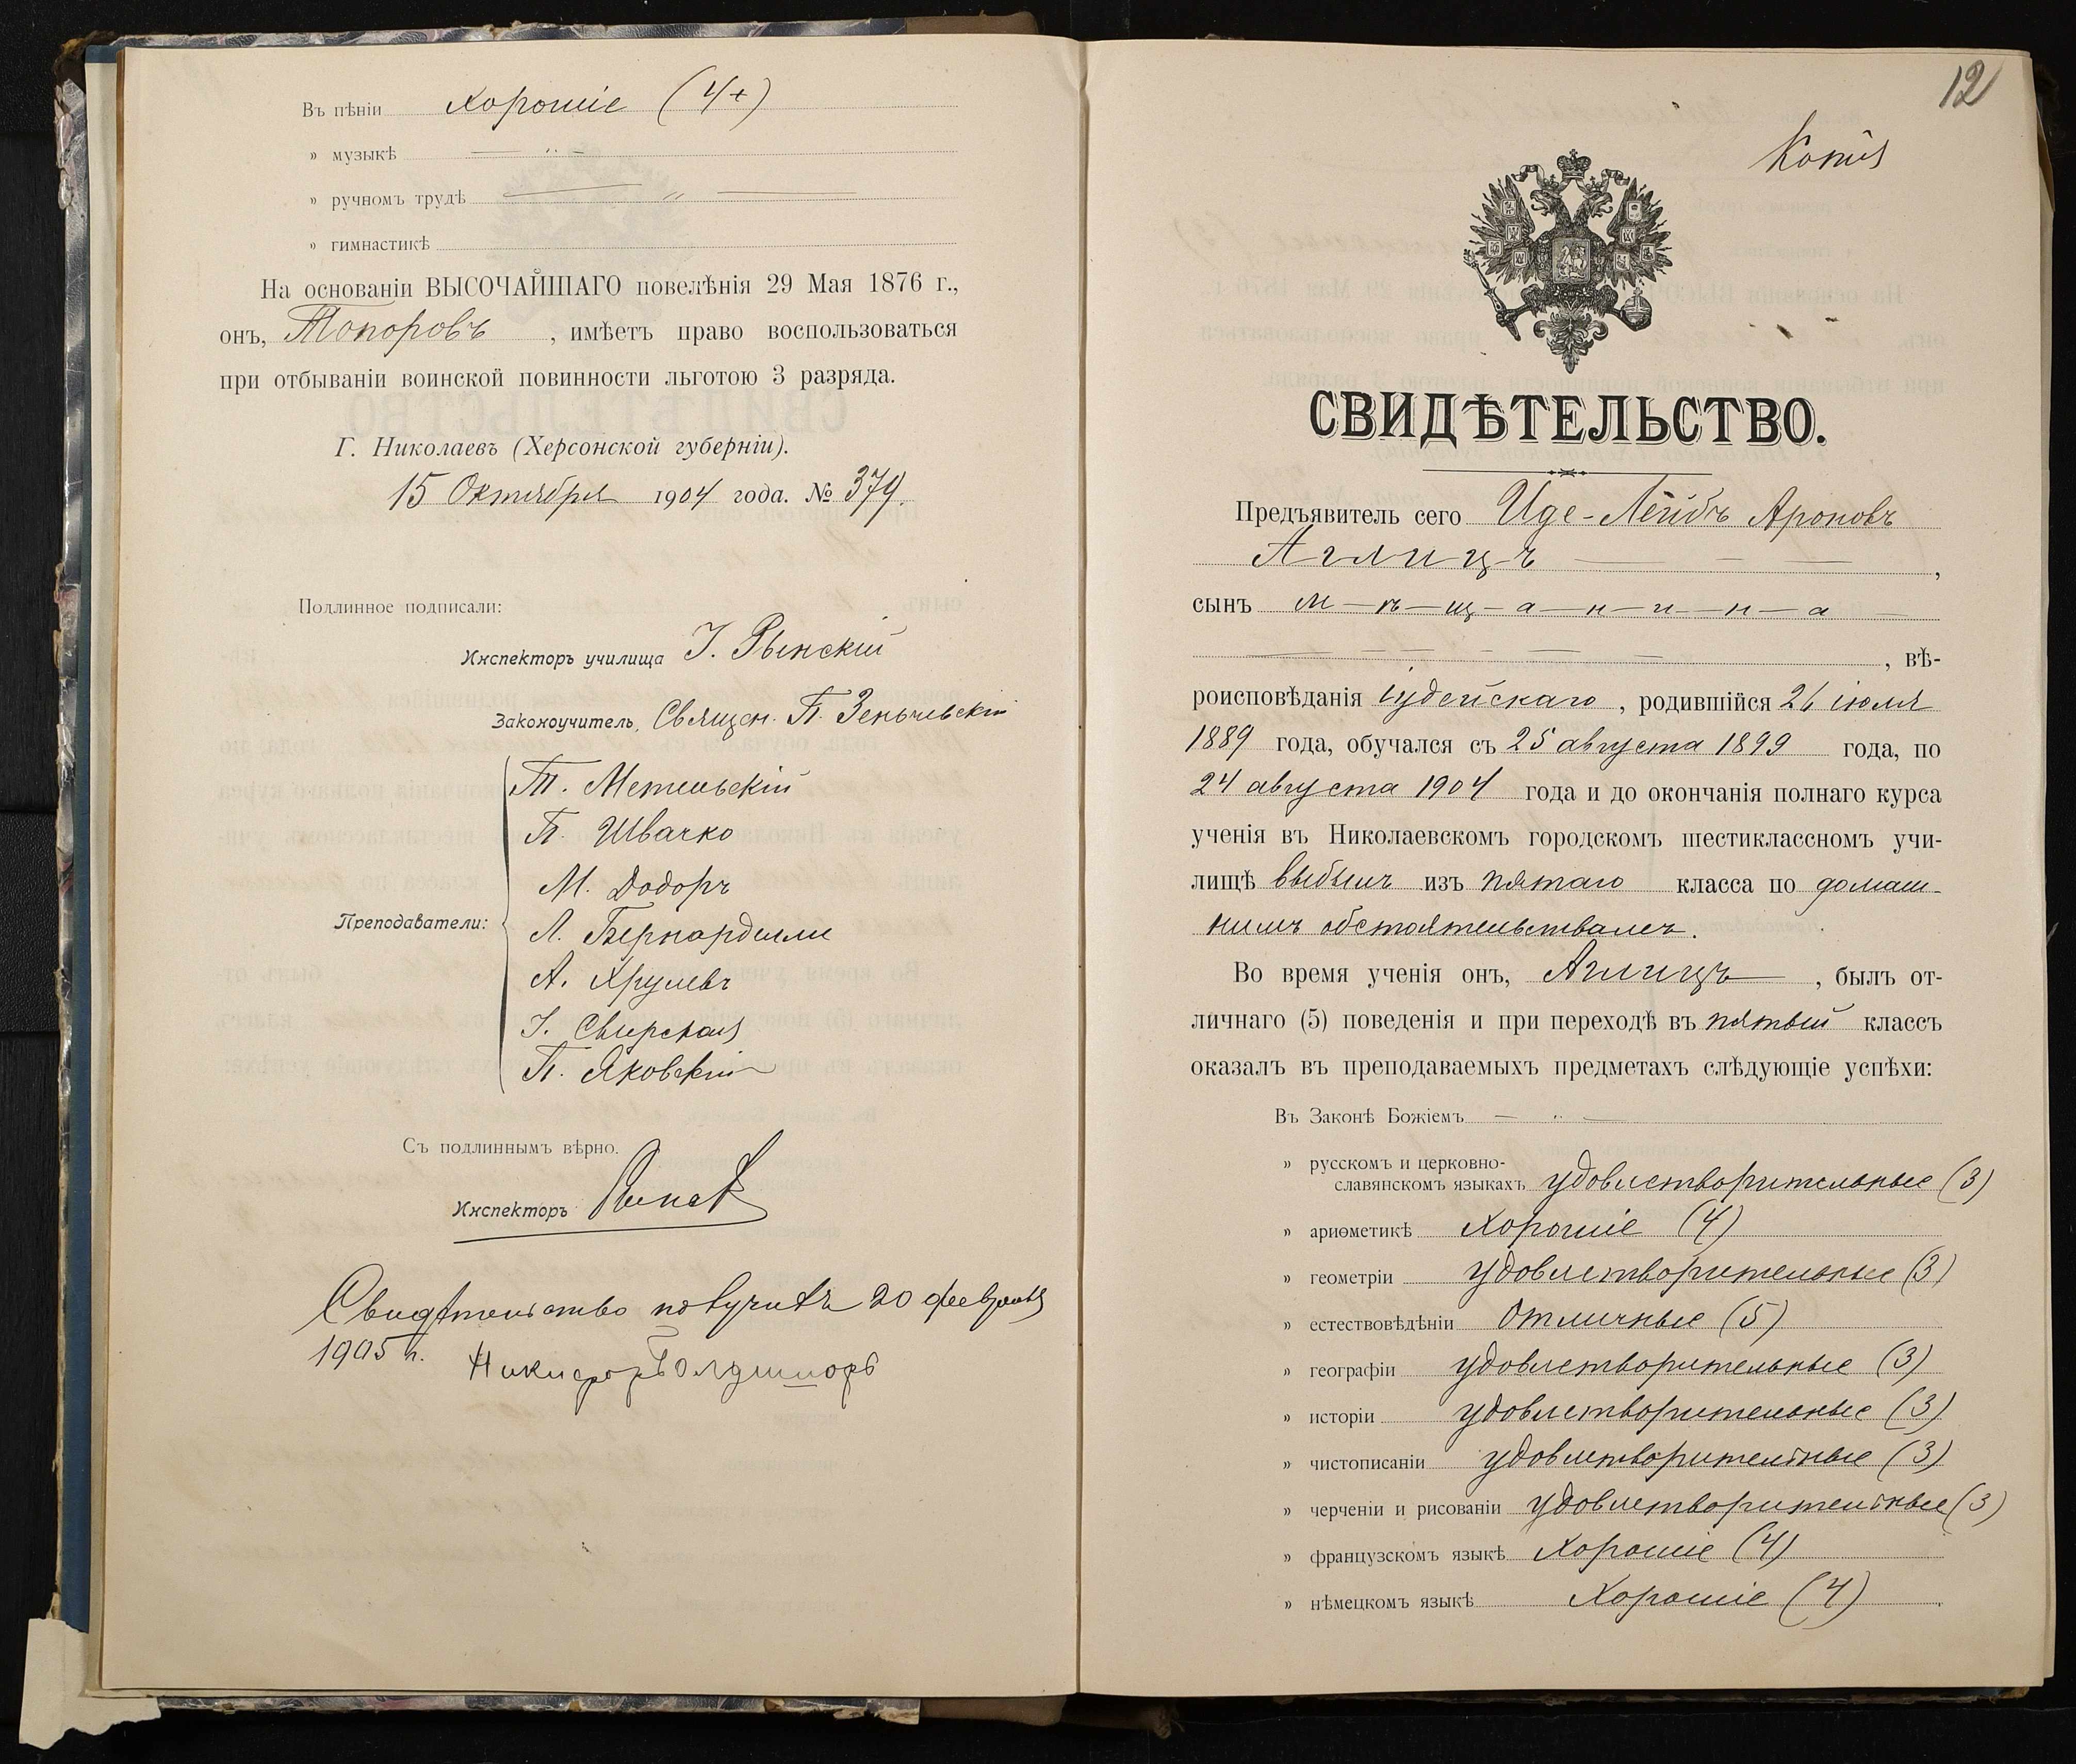 Въ пѣніи Хорошіе (4+)
» музыкѣ — „ —
» ручномъ трудѣ — „ —
» гимнастикѣ
На основаніи ВЫСОЧАЙШАГО повелѣнія 29 Мая 1876 г.,
онъ, Топоровъ, имѣетъ право воспользоваться
при отбываніи воинской повинности льготою 3 разряда.
Г. Николаевъ (Херсонской губерніи).
15 Октября 1904 года. № 379.
Подлинное подписали:
Инспекторъ училища І. Рынскій
Законоучитель, Священ. П. Зенчевскій
Преподаватели:
П. Метельскій
П. Швачко
М. Додоръ
Л. Бернарделли
А. Хрулевъ
І. Свирская
П. Яковскій
Съ подлиннымъ вѣрно.
Инспекторъ
Свидѣтельство получилъ 20 февраля
1905 г. Никифоръ
12
Копія
СВИДѢТЕЛЬСТВО.
Предъявитель сего Иде-Лейбъ Ароновъ
Аглицъ — — — ,
сынъ м—ѣ—щ—а—н—и—н—а
— — — — — — , вѣ-
роисповѣданія іудейскаго, родившійся 26 іюля
1889 года, обучался съ 25 августа 1899 года, по
24 августа 1904 года и до окончанія полнаго курса
ученія въ Николаевскомъ городскомъ шестиклассномъ учи-
лищѣ выбылъ изъ пятаго класса по домаш-
нимъ обстоятельствамъ.
Во время ученія онъ, Аглицъ, былъ от-
личнаго (5) поведенія и при переходѣ въ пятый классъ
оказалъ въ преподаваемыхъ предметахъ слѣдующіе успѣхи:
Въ Законѣ Божіемъ — „ —
» русскомъ и церковно-
славянскомъ языкахъ удовлетворительные (3)
» ариѳметикѣ Хорошіе (4)
» геометріи удовлетворительные (3)
» естествовѣдѣніи Отличные (5)
» географіи удовлетворительные (3)
» исторіи удовлетворительные (3)
» чистописаніи удовлетворительные (3)
» черченіи и рисованіи удовлетворительные (3)
» французскомъ языкѣ Хорошіе (4)
» нѣмецкомъ языкѣ Хорошіе (4)